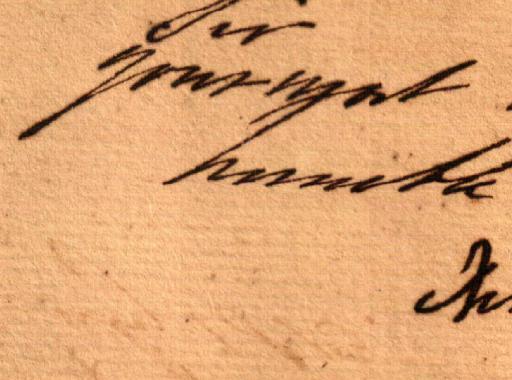 Sir
your most
humble